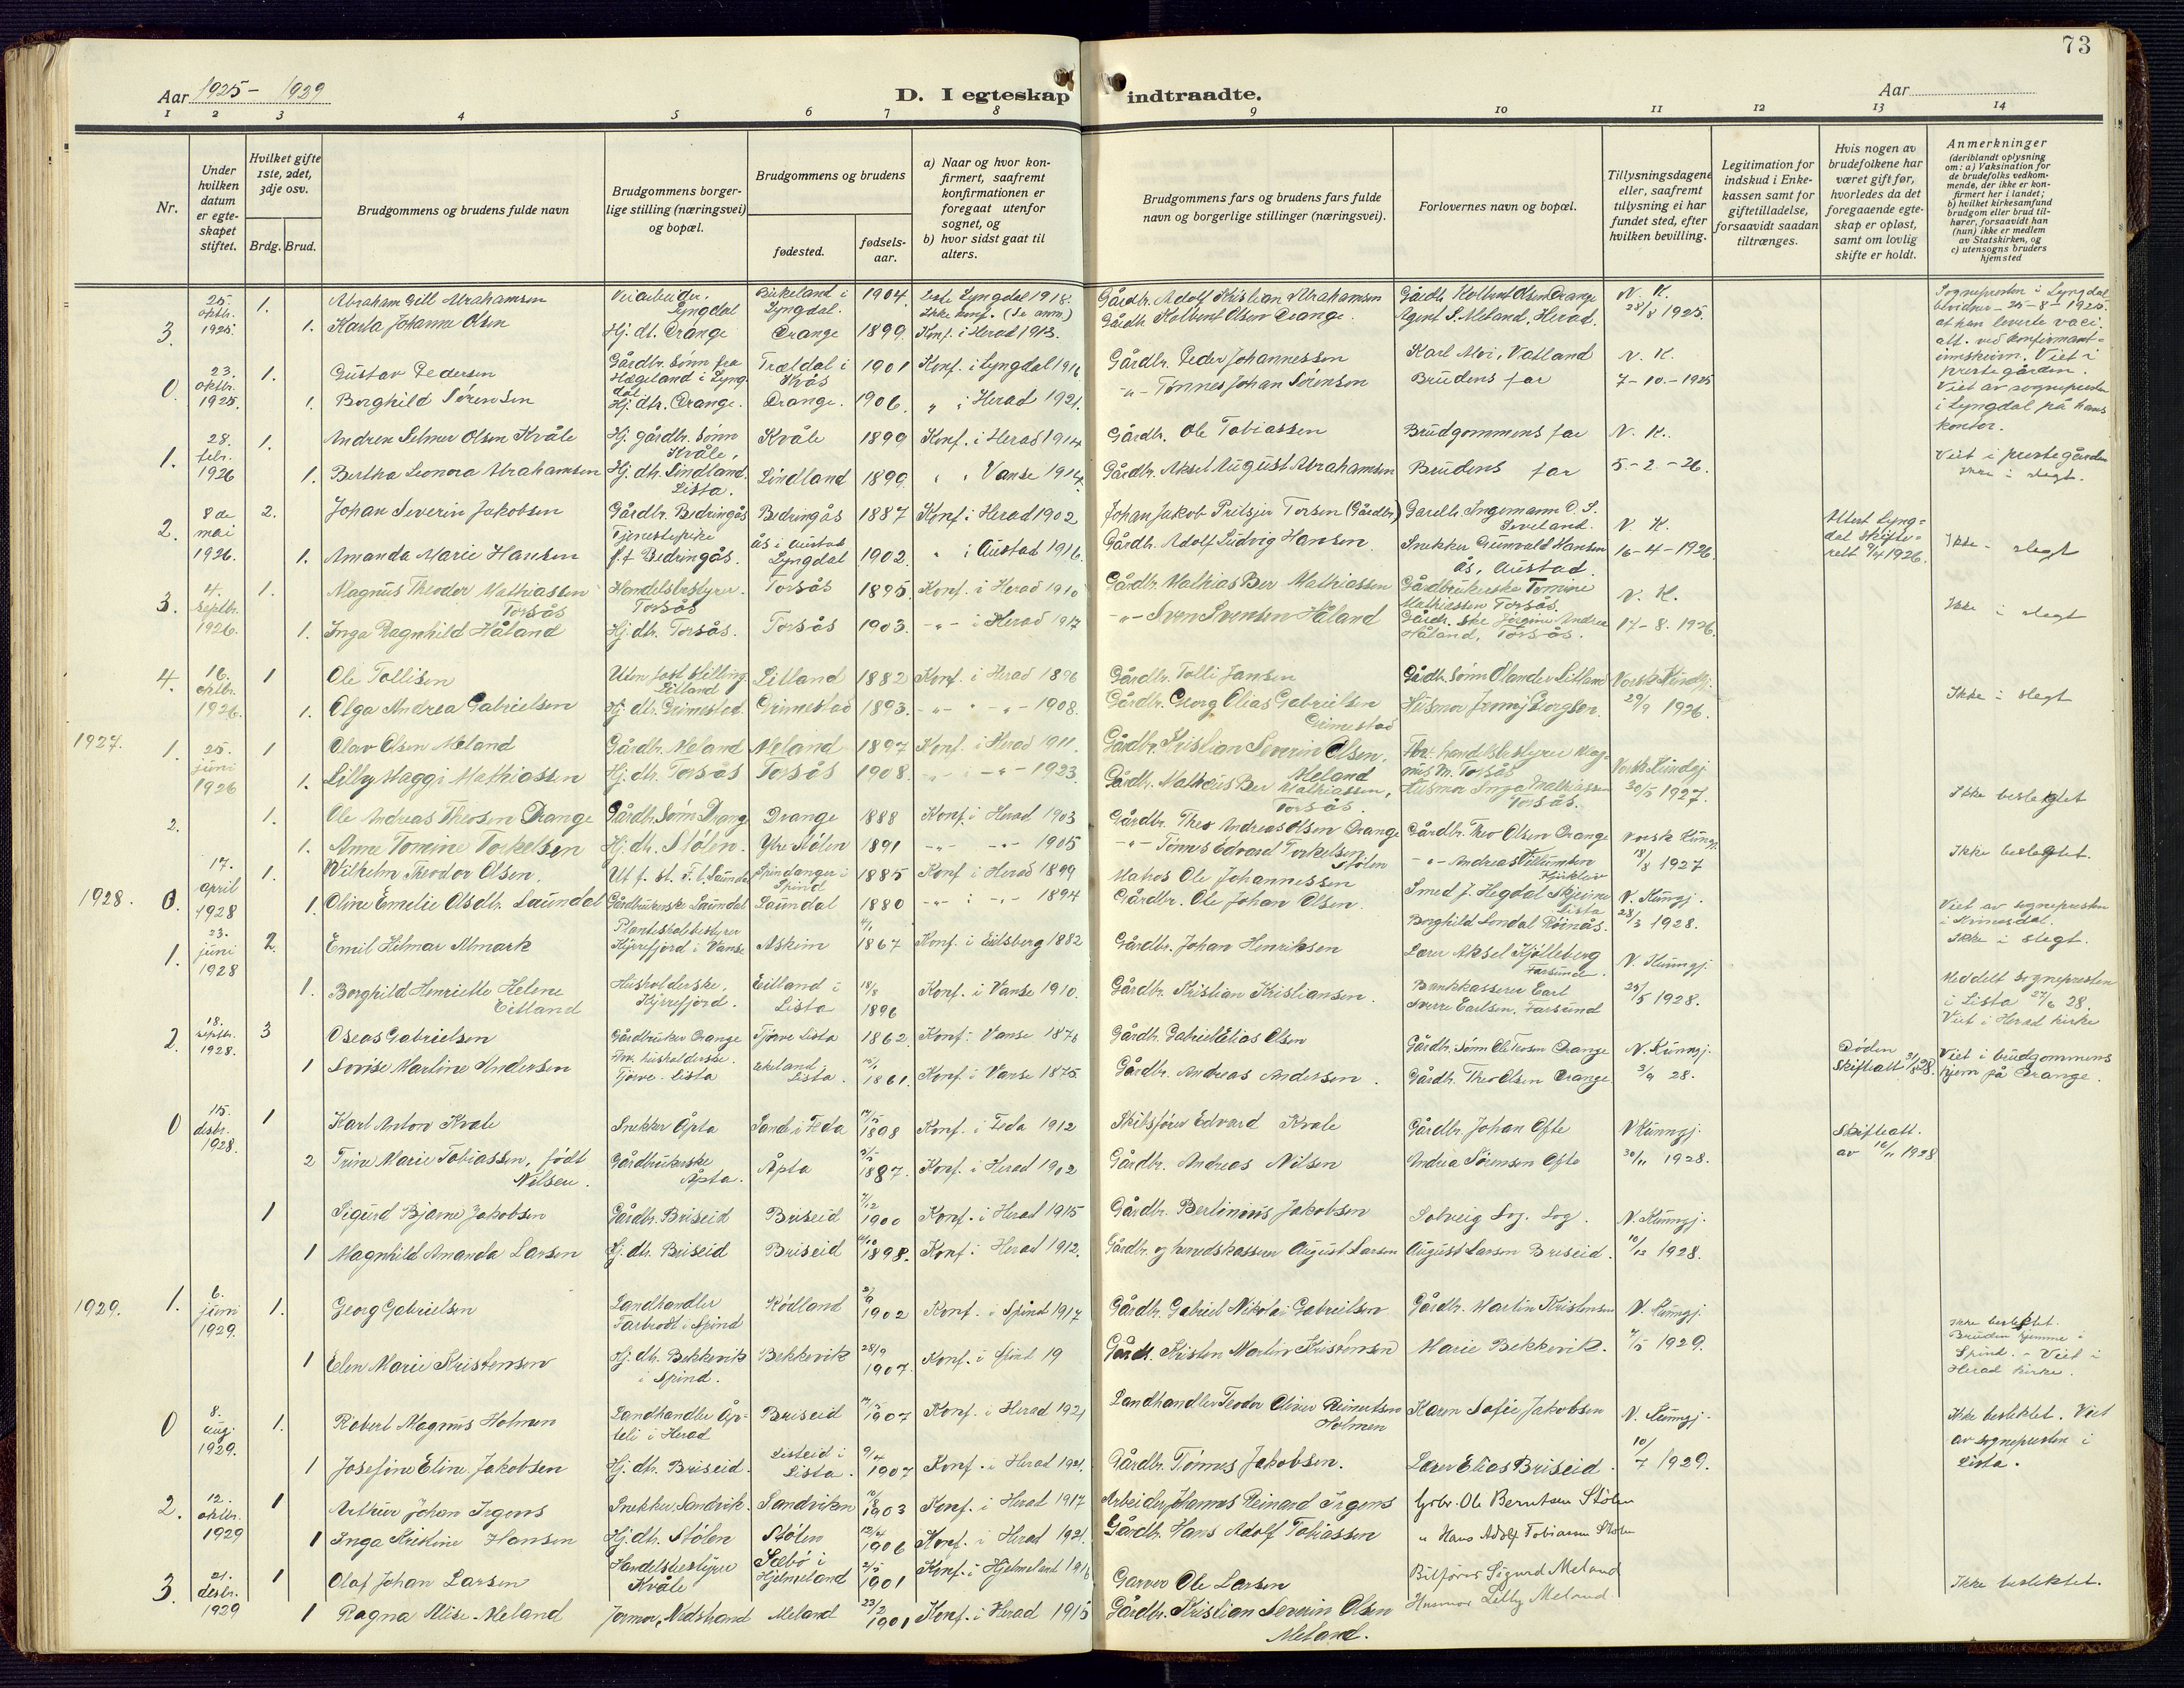 73
Aar 1925 – 1929
D. I egteskap indtraadte.
Aar
1 2 3 4 5 6 7 8 9 10 11 12 13 14
Nr.
Under hvilken datum er egteskapet stiftet.
Hvilket gifte 1ste, 2det, 3dje osv.
Brdg. Brud.
Brudgommens og brudens fulde navn
Brudgommens borgerlige stilling (næringsvei) og bopæl.
Brudgommens og brudens
fødested.
fødselsaar.
a) Naar og hvor konfirmert, saafremt konfirmationen er foregaat utenfor sognet, og
b) hvor sidst gaat til alters.
Brudgommens fars og brudens fars fulde navn og borgerlige stillinger (næringsvei).
Forlovernes navn og bopæl.
Tillysningsdagene eller, saafremt tillysning ei har fundet sted, efter hvilken bevilling.
Legitimation for indskud i Enkekassen samt for giftetilladelse, forsaavidt saadan tiltrænges.
Hvis nogen av brudefolkene har været gift før, hvorledes da det foregaaende egteskap er opløst, samt om lovlig skifte er holdt.
Anmerkninger (deriblandt oplysning om: a) Vaksination for de brudefolks vedkommende, der ikke er konfirmert her i landet; b) hvilket kirkesamfund brudgom eller brud tilhører, forsaavidt han (hun) ikke er medlem av Statskirken, og c) utensogns bruders hjemsted
3. 25. oktbr. 1925. 1. Abraham Gill Abrahamsen Veiarbeider. Lyngdal Birkeland i Lyngdal. 1904. Gårdbr. Adolf Kristian Abrahamsen Gårdbr. Kolbent Olsen Drange N. K.
1. Karla Johanne Olsen Hj. dt. Drange Drange 1899. Konf. i Herad 1913. Gårdbr. Kolbent Olsen Drange. Agent S. Meland, Herad. 28/8 1925.
0. 23. oktbr. 1925. 1. Gustav Pedersen Gårdbr. sønn fra Hægeland i Lyngdal Trældal i Kvås 1901 Konf. i Lyngdal 1916 Gårdbr. Peder Johannessen Karl Moi, Vatland N. K. Viet av sognepresten i Lyngdal på hans kontor.
1. Borghild Sørensen Hj. dtr. Drange. Drange. 1906. " i Herad 1921. -"- Tønnes Johan Sørensen Brudens far 7-10-1925
1. 28. febr. 1926 1. Andreas Selmer Olsen Kvåle Hj. gårdbr. sønn Kvåle, Kvåle 1899 Konf. i Herad 1914 Gårdbr. Ole Tobiassen Brudgommens far N. K.
1. Bertha Leonora Abrahamsen Hj. dtr. Lindland. Lista. Lindland 1899. " " Vanse 1914. Gårdbr. Aksel August Abrahamsen Brudens far 5-2-26. Viet i prestegården Ikke i slegt.
2. 8de mai 1926. 2. Johan Severin Jakobsen Gårdbr. Bedringås Bedringås 1887 Konf. i Herad 1902 Johan Jakob Pritsjer Torsen (Gårdbr.) Gardbr. Ingemann O. S. Leveland. N. K. Utført Lyngdal skifterett 9/4 1926.
1. Amanda Marie Hansen Tjenestepike f.t. Bedringås. Ås i Austad Lyngdal 1902. " i Austad 1916. Gårdbr. Adolf Ludvig Hansen Snekker Gunvald Hansen Ås, Austad. 16-4-1926 Ikke i slegt
3. 4. septbr. 1926. 1. Magnus Theodor Mathiassen Torsås Handelsbestyrer. Torsås Torsås 1895. Konf. i Herad 1910 Gårdbr. Mathias Ber Mathiassen Gårdbrukerske Tomine Mathiassen Torsås. N. K. Ikke i slegt
1. Inga Ragnhild Håland Hj. dtr. Torsås. Torsås 1903. -"- i Herad 1917 -"- Sven Svensen Håland Gårdbr.ske Jørgine Andrea Håland, Torsås. 17-8.1926.
4. 16. oktbr. 1926. 1 Ole Tollisen Uten fast stilling. Litland Litland 1882 Konf. i Herad 1896 Gårdbr. Tolli Jansen Gårdbr. sønn Olander Litland Norsk Kundgj. Ikke i slegt
1. Olga Andrea Gabrielsen Hj. dtr. Grimestad. Grimestad 1893. -"- 1908. Gårdbr. Georg Elias Gabrielsen Grimestad Husmor Jenny Bergsen. 29/9 1926.
1927. 1. 25. juni 1926 1 Olav Olsen Meland Gårdbr. Meland Meland 1897 Konf. i Herad 1911. Gårdbr. Kristian Severin Olsen, Meland Fhv. handelsbestyrer Magnus M. Torsås Norsk Kundgj.
1. Lilly Maggi Mathiassen Hj. dtr. Torsås Torsås 1908. -"- 1923. Gårdbr. Mathæus Ber Mathiassen, Torsås. Husmor Inga Mathiassen Torsås. 30/5 1927. Ikke beslegtet
2. 1. Ole Andreas Theosen Drange Gårdbr. Sønn Drange Drange 1888 Konf. i Herad 1903 Gårdbr. Theo Andreas Olsen Drange Gårdbr. Theo Olsen Drange Norsk Kungj.
1. Anne Tomine Torkelsen Hj. dtr. Stølen. Ytre Stølen 1891 -"- 1905 -"- Tønnes Edvard Torkelsen Stølen -"- Andreas 18/8 1927 Ikke beslegtet.
1928. 0. 17. april 1928 1. Wilhelm Theodor Olsen. Spindanger i Spind 1885 Konf. i Herad 1899 Matros Ole Johannessen Smed J. Hegdal Skjeime Lista N. Kungj. Viet av sognepresten i Kvinesdal.
1. Oline Emelie Olsdtr. Laundal Gårdbrukerske Laundal Laundal 1880 -"- i -"- 1894 Gårdbr. Ole Johan Olsen. Borghild Londal Røinås. 28/3 1928.
1. 23. juni 1928 2. Emil Hilmar Almark Planteskolebestyrer Kjørrefjord i Vanse Askim 1867 Konf. i Eidsberg 1882 Gårdbr. Johan Henriksen Lærer Aksel Kjølleberg Farsund. N. Kungj. Ikke i slegt.
1. Borghild Henriette Helene Eitland Husholderske, Kjørrefjord. Eitland i Lista 18/8 1896 Konf. i Vanse 1910. Gårdbr. Kristian Kristiansen. Bankkasserer Earl Sverre Earlsen, Farsund 25/5 1928. Meddelt sognepresten i Lista 27/6 28. Viet i Herad kirke
2. 18. septbr. 1928. 3 Oseas Gabrielsen Gårdbruker Drange Tjørve Lista 1862. Konf. i Vanse 1876 Gårdbr. Gabriel Elias Olsen Gårdbr. Sønn Ole Theosen Drange N. Kunngj. Døden Skifteatt 31/8 28. Viet i brudgommens hjem på Drange.
1 Lovise Martine Andersen Fhv. husholderske. Tjørve. Lista Ekeland, Lista. 1861. Konf. i Vanse 1875. Gårdbr. Andreas Andersen. Gårdbr. Theo Olsen Drange 3/9 28.
0 15. desbr. 1928. 1 Karl Anton Kvale Snekker Åpta Sande i Feda 1898 Konf. i Feda 1912 Skibsfører Edvard Kvale Gårdbr. Johan Ofte N Kunngj. Skifteatt. av 16/11 1928
2 Trine Marie Tobiassen, født Nilsen. Gårdbrukerske Åpta. Åpta 1887. Konf. i Herad 1902 Gårdbr. Andreas Nilsen Andrea Sørensen Ofte 30/11 1928.
1 Sigurd Bjarne Jakobsen Gårdbr. Briseid Briseid 7/12 1900 Konf. i Herad 1915 Gårdbr. Bertinius Jakobsen N. Kunngj.
1 Magnhild Amanda Larsen Hj. dtr. Briseid Briseid 1898. Konf. i Herad 1912. Gårdbr. og herredskasserer August Larsen August Larsen Briseid. 10/12 1928.
1929. 1. 6. juni 1929. 1. Georg Gabrielsen Landhandler Farbrodt i Spind Rødland 1902 Konf. i Spind 1917 Gårdbr. Gabriel Nikolai Gabrielsen Gårdbr. Martin Kristensen N. Kunngj.
1 Elen Marie Kristensen Hj. dtr. Bekkevik i Spind. Bekkevik 28/9 1907. Konf. i Spind 19 Gårdbr. Kristen Martin Kristensen Marie Bekkevik. 7/5 1929. Ikke beslektet. Bruden hjemme i Spind. - Viet i Herad kirke.
0 8. aug. 1929. 1. Robert Magnus Holmen Landhandler i Herad Briseid 1907 Konf. i Herad 1921 Landhandler Teodor Oliver Reinertsen Holmen Karen Sofie Jakobsen N. Kunngj. Ikke beslektet. Viet av sognepresten i Lista.
1 Josefine Eline Jakobsen Hj. dtr. Briseid. Listeid i Lista. 9/4 1907 Konf. i Herad 1921. Gårdbr. Tønnes Jakobsen. Lærer Elias Briseid. 10/7 1929.
2. 12. oktbr. 1929 1 Arthur Johan Irgens Snekker, Sandvik. Sandviken 10/8 1903 Konf. i Herad 1917 Arbeider Johannes Reinard Irgens Grbr. Ole Berntsen Stølen
1 Inga Kristine Hansen Hj. dtr. Stølen Stølen 12/4 1906 Konf. i Herad 1921. Gårdbr. Hans Adolf Tobiassen " Hans Adolf Tobiassen Stølen
3. 21. desbr. 1929 1 Olaf Johan Larsen Handelsbestyrer Kvåle Sæbø i Hjelmeland 2/5 1901 Konf. i Hjelmeland 1916 Garver Ole Larsen Bilfører Sigurd Meland Ikke beslektet.
1 Ragna Elise Meland Jormor, Nedstrand Meland 23/2 1901 Konf. i Herad 1915 Gårdbr. Kristian Severin Olsen Meland. Husmor Lilly Meland